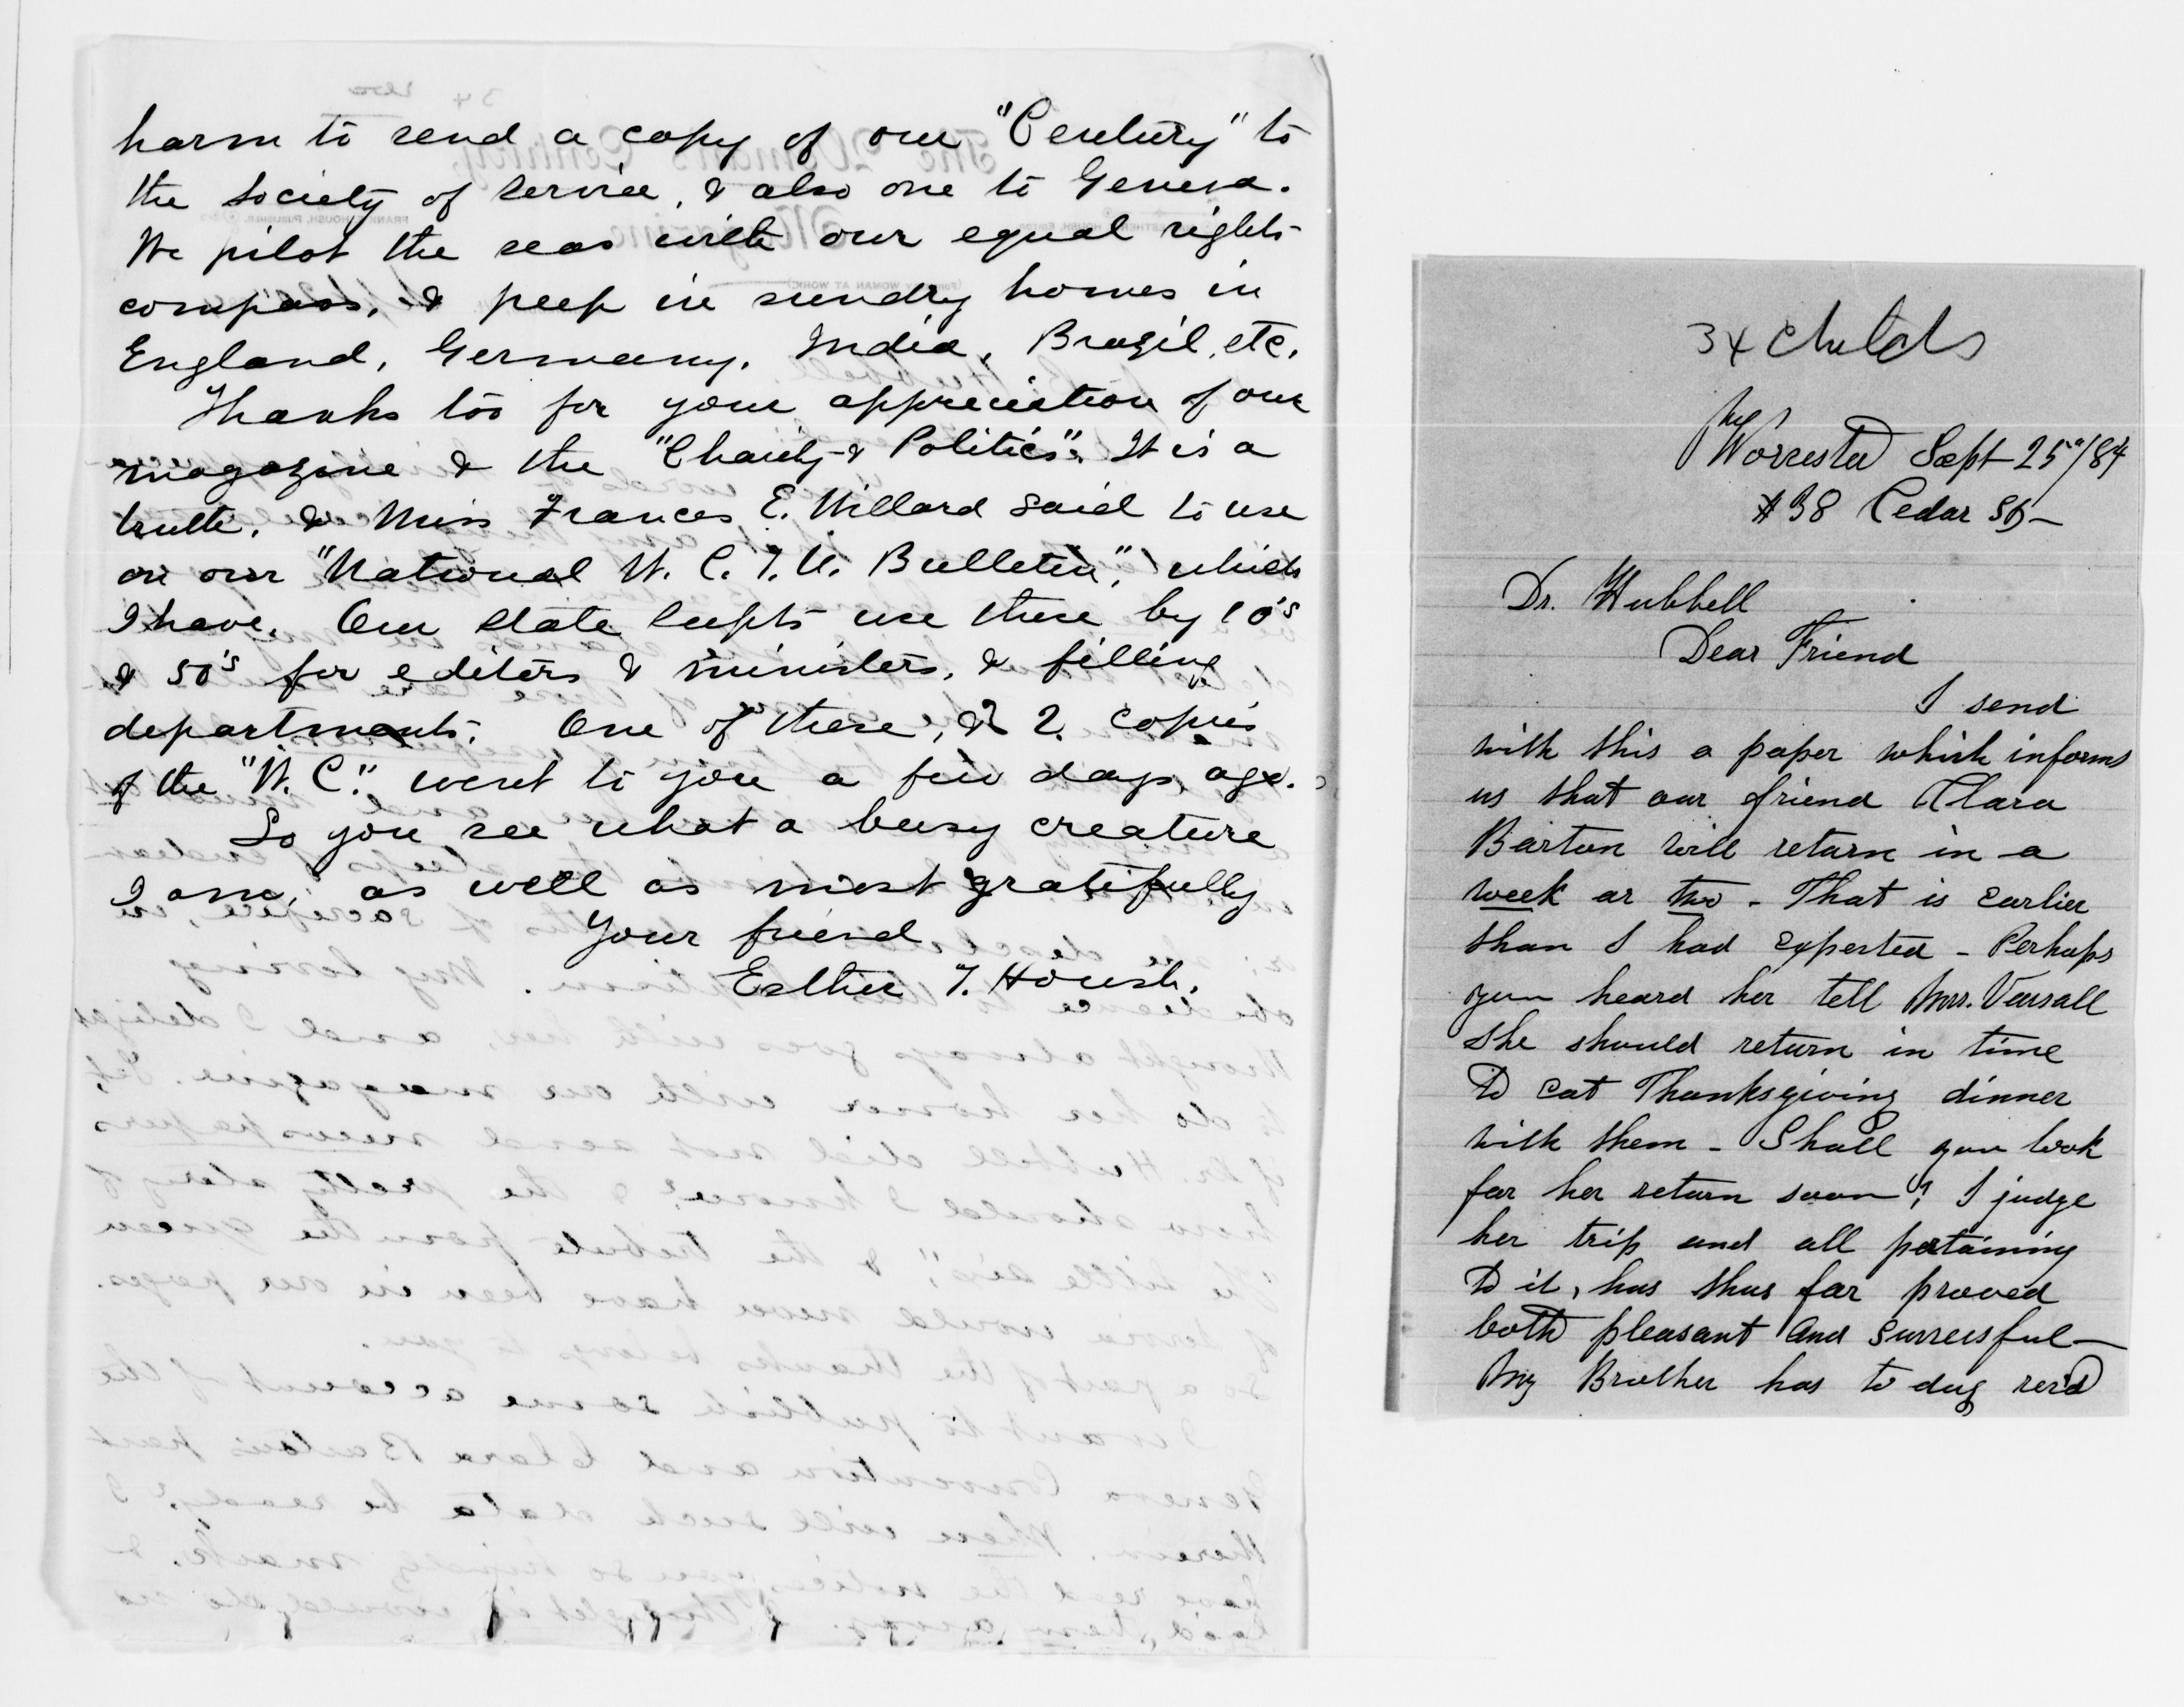 harm to send a copy of our "Century" to
the Society of Servia, & also one to Geneva.
We pilot the seas with our equal rights
compass, & peep in sundry homes in
England, Germany, India, Brazil, etc.
Thanks too for your appreciation of our
magazine & the "Charity & Politics". It is a
truth, & Miss Frances E. Willard said to use
on our "National W. C. T. U. Bulletin," which
I have. Our State Supts use these by 10's
& 50's for editors & ministers, & filling
departments. One of these, & 2 copies
of the "W. C." went to you a few days ago.
So you see what a busy creature
I am, as well as most gratefully
Your friend
Esther T. Housh.
34 Childs
Worcester Sept 25"/84
#38 Cedar St-
Dr. Hubbell
Dear Friend
I send
with this a paper which informs
us that our friend Clara
Barton will return in a
week or two - That is earlier
than I had expected - Perhaps
you heard her tell Mrs.
she should return in time
to eat Thanksgiving dinner
with them - Shall you look
for her return soon? I judge
her trip and all pertaining
to it, has thus far proved
both pleasant and successful-
My Brother has to day rec'd